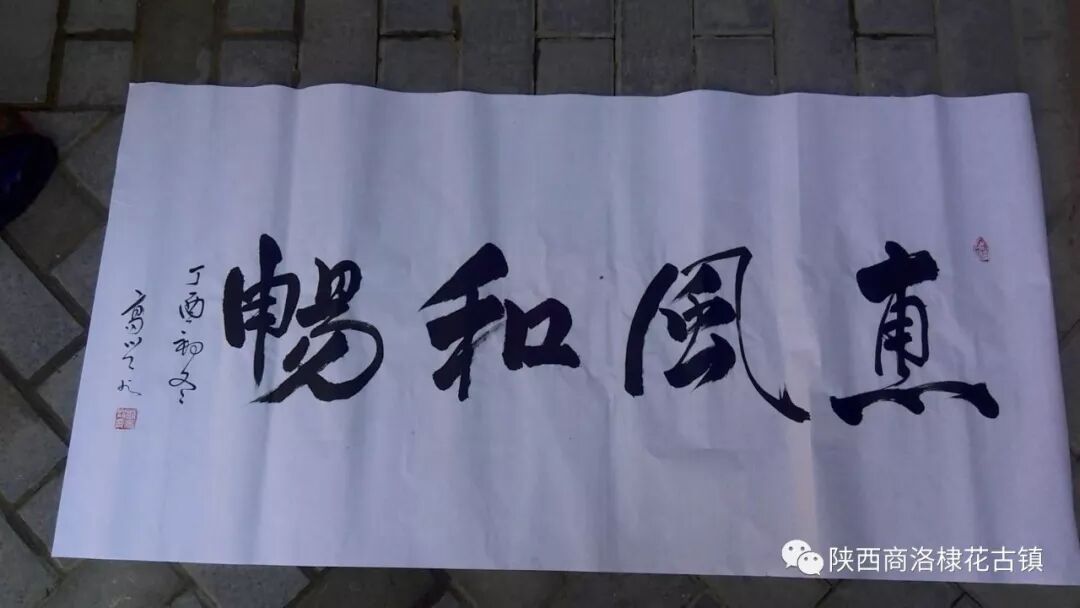 惠风和畅
丁酉初冬
陕西商洛棣花古镇